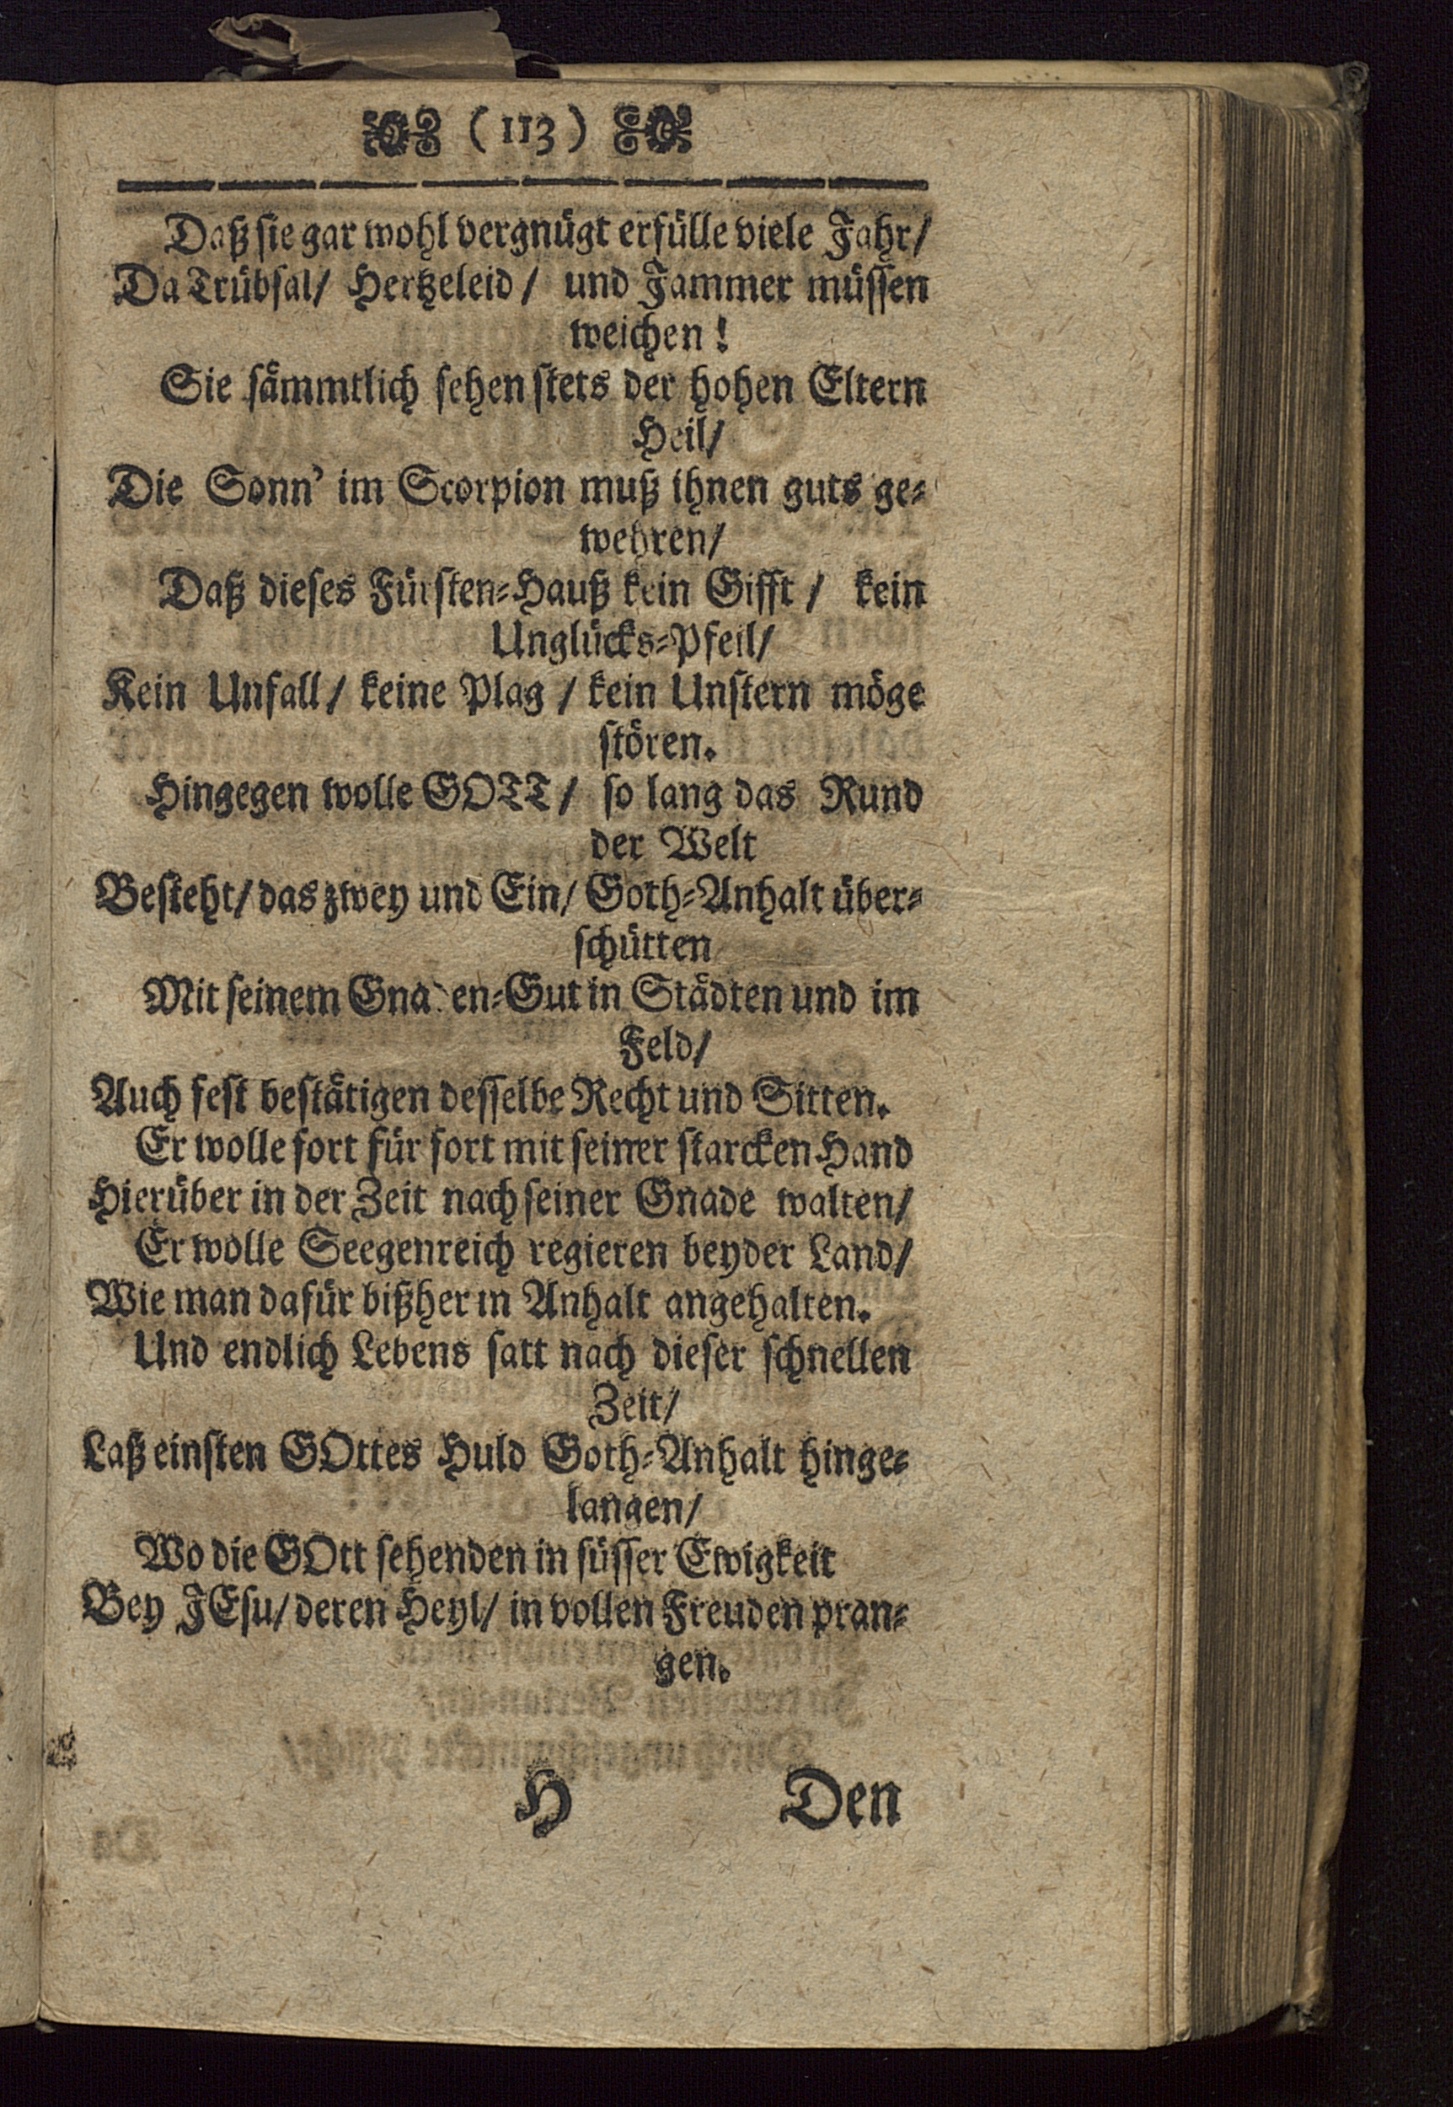 ( 113 )
Daß sie gar wohl vergnügt erfülle viele Jahr/
Da Trübsal/ Hertzeleid/ und Jammer müssen
weichen!
Sie sämmtlich sehen stets der hohen Eltern
Heil/
Die Sonn' im Scorpion muß ihnen guts ge-
wehren/
Daß dieses Fürsten-Hauß kein Gifft/ kein
Unglücks-Pfeil/
Kein Unfall/ keine Plag/ kein Unstern möge
stören.
Hingegen wolle GOTT/ so lang das Rund
der Welt
Besteht/ das zwey und Ein/ Goth-Anhalt über-
schütten
Mit seinem Gnaden-Gut in Städten und im
Feld/
Auch fest bestätigen desselbe Recht und Sitten.
Er wolle fort für fort mit seiner starcken Hand
Hierüber in der Zeit nach seiner Gnade walten/
Er wolle Seegenreich regieren beyder Land/
Wie man dafür bißher in Anhalt angehalten.
Und endlich Lebens satt nach dieser schnellen
Zeit/
Laß einsten GOttes Huld Goth-Anhalt hinge-
langen/
Wo die GOtt sehenden in süsser Ewigkeit
Bey JEsu/ deren Heyl/ in vollen Freuden pran-
gen.
H Den